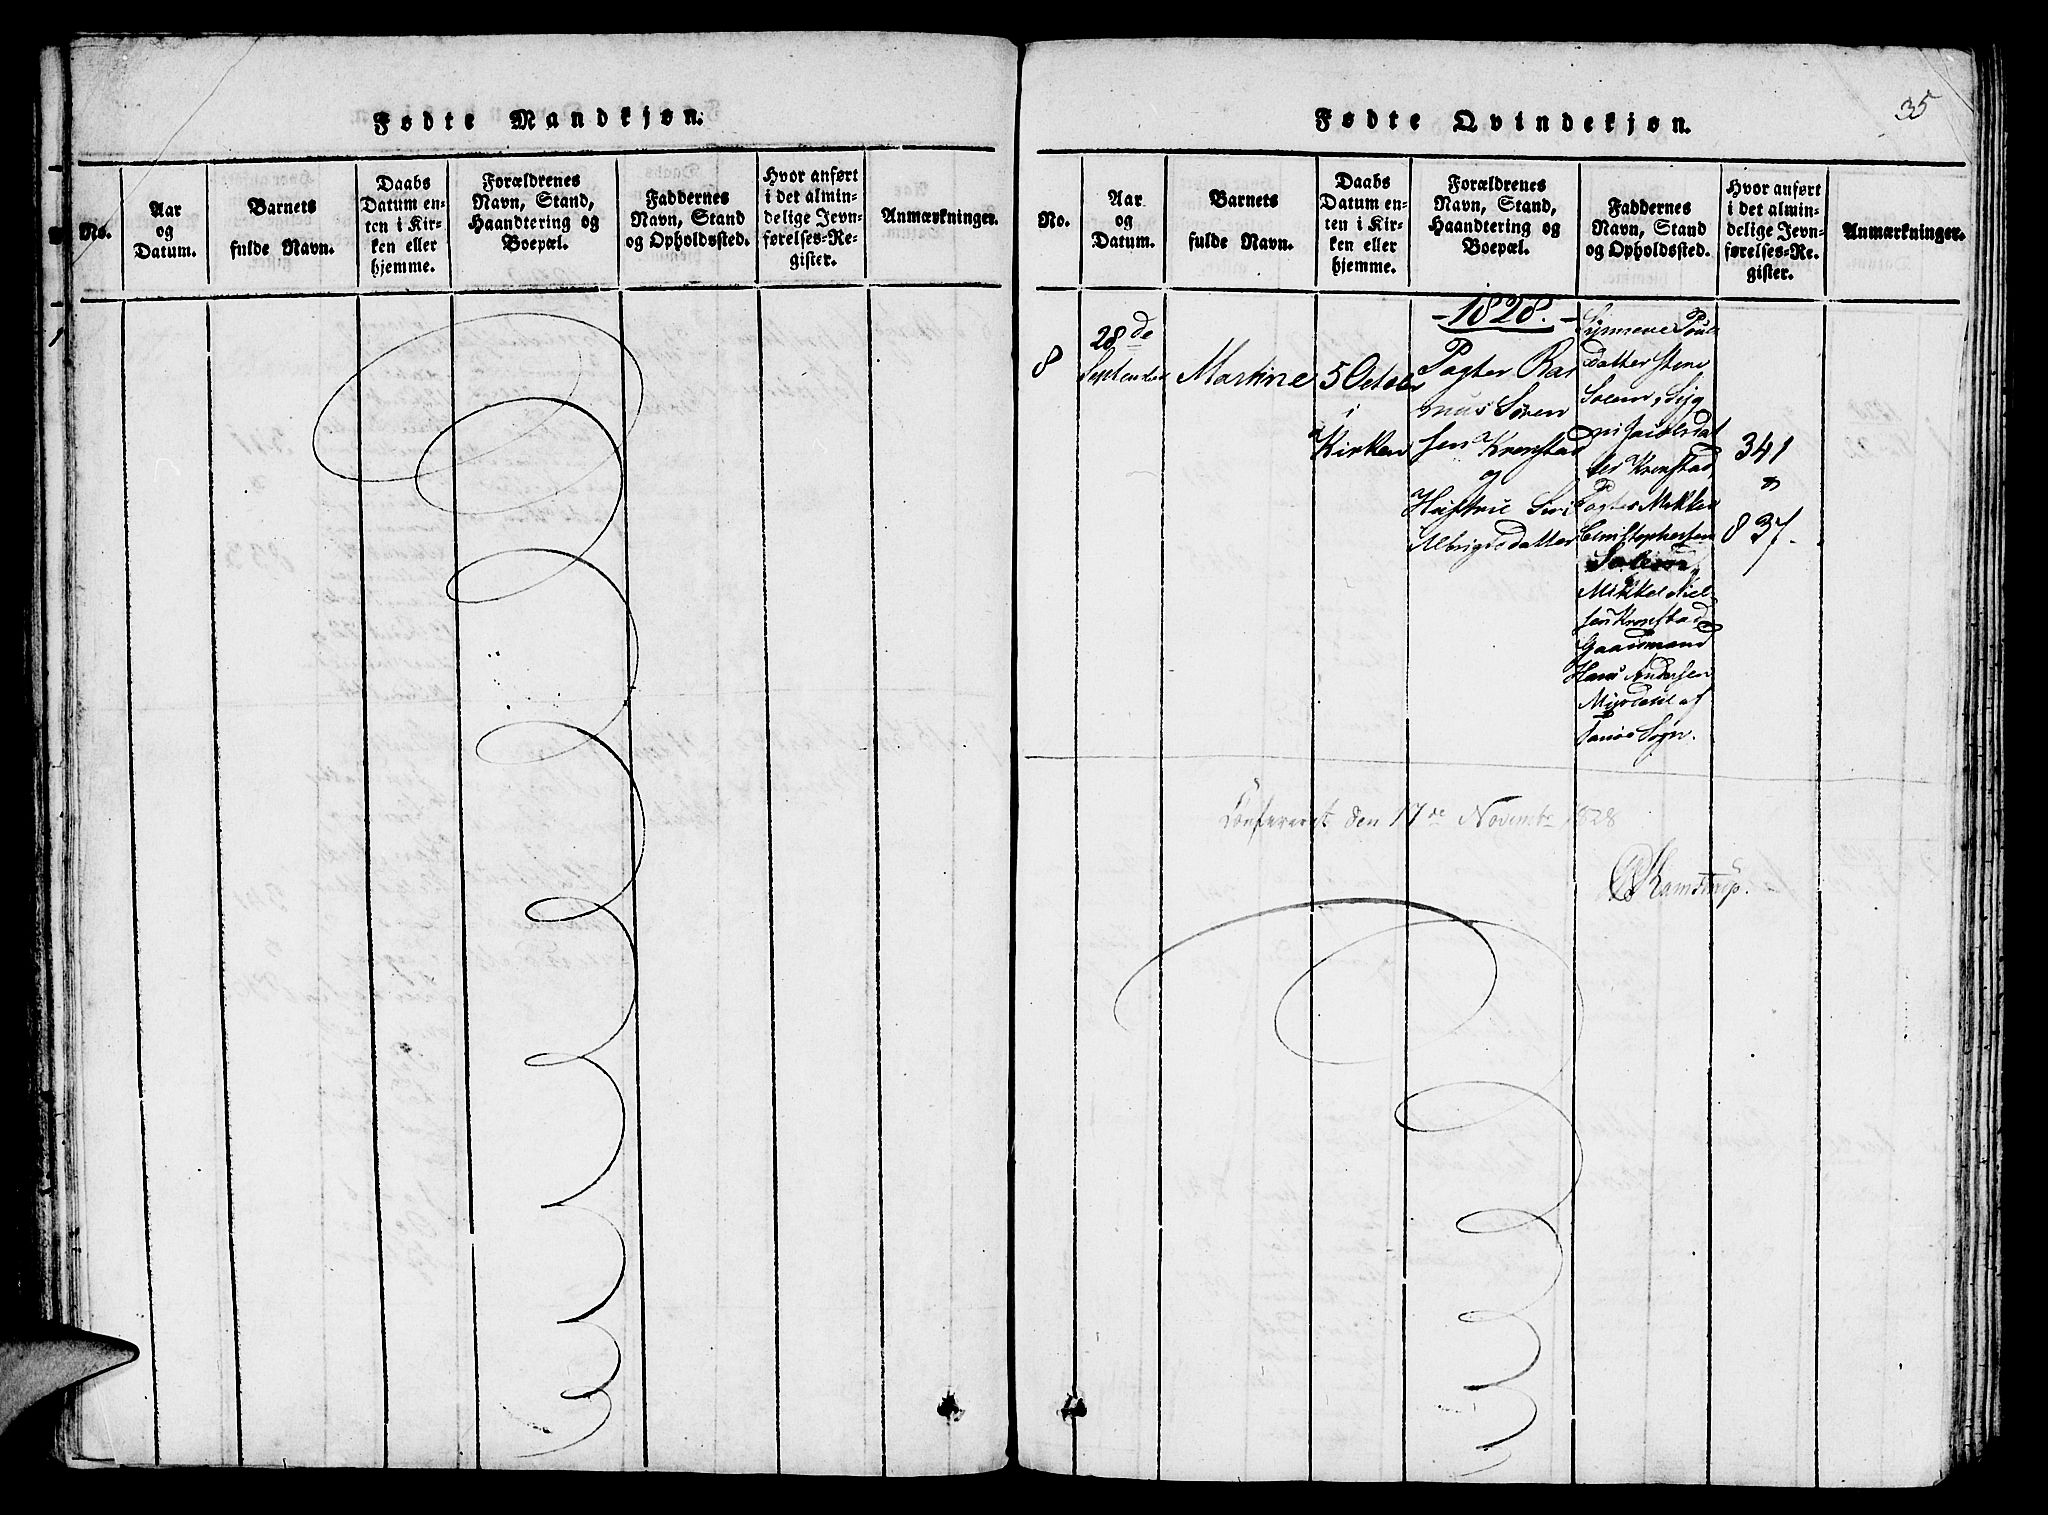 Fødte Mandkjøn.
No.
Aar
og
Datum.
Barnets
fulde Navn.
Daabs
Datum en-
ten i Kir-
ken eller
hjemme.
Forældrenes
Navn, Stand,
Haandtering og
Boepæl.
Faddernes
Navn, Stand
og Opholdssted.
Hvor anført
i det almin-
delige Jevn-
førelses-Re-
gister.
Anmærkninger.
35
Fødte Qvindekjøn.
No.
Aar
og
Datum.
Barnets
fulde Navn.
Daabs
Datum en-
ten i Kir-
ken eller
hjemme.
Forældrenes
Navn, Stand,
Haandtering og
Boepæl.
Faddernes
Navn, Stand
og Opholdssted.
Hvor anført
i det almin-
delige Jevn-
førelses-Re-
gister.
Anmærkninger.
8
28de
September
Martine
5 October
i
Kirken
- 1828. -
Pagter Ras
mus Søren
sen Kronstad
og
Hustrue Siri
Albrigtsdatter
Synneve Pouls
datter Stene
Solem, Sig
ni Jacobsdat
ter Kronstad,
Pagter Mikkel
Christophersen
Mikkel Niel
sen Kronstad
Gaardmand
Hans Andersen
af
Sogn.
341
"
837.
Confereret den 17de Novembr 1828
Kamstrup.